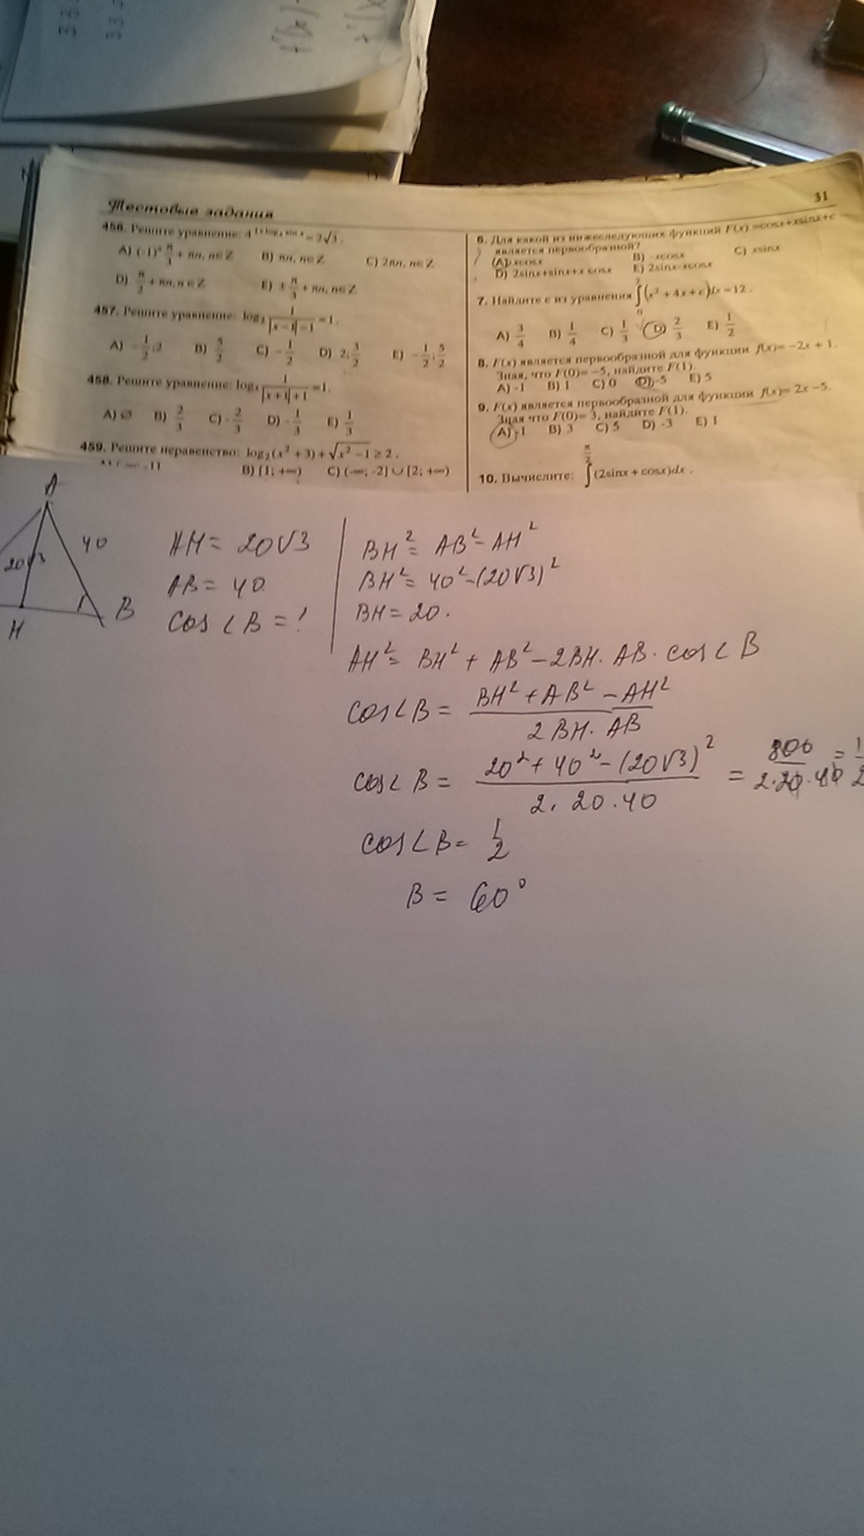 Тестовые задания
31
456. Решите уравнение:
A) (-1)ⁿ π/3 + πn, n∈Z B) πn, n∈Z C) 2πn, n∈Z
D) π/2 + πn, n∈Z E) ± π/3 + πn, n∈Z
457. Решите уравнение: log₂ 1/(|x−1|−1) =1.
A) −1/2; 2 B) 5/2 C) −1/2 D) 2; 3/2 E) −1/2; 5/2
458. Решите уравнение: log₃ 1/(|x+1|+1) =1.
A) ∅ B) 2/3 C) -2/3 D) -1/3 E) 1/3
459. Решите неравенство: log₂(x² + 3) + √(x² − 1) ≥ 2 .
B) [1; +∞) C) (-∞; -2] ∪ [2; +∞)
6. Для какой из нижеследующих функций F(x) =cosx+xsinx+c
является первообразной?
A) xcosx B) -xcosx C) xsinx
D) 2sinx+sinx+x cosx E) 2sinx-xcosx
7. Найдите c из уравнения ∫₀²(x² + 4x + c)dx =12 .
A) 3/4 B) 1/4 C) 1/3 D) 2/3 E) 1/2
8. F(x) является первообразной для функции f(x)= −2x + 1.
Зная, что F(0)= −5, найдите F(1).
A) -1 B) 1 C) 0 D) -5 E) 5
9. F(x) является первообразной для функции f(x)= 2x −5.
Зная что F(0)= 3, найдите F(1).
A) -1 B) 3 C) 5 D) -3 E) 1
10. Вычислите: ∫(2sinx + cosx)dx .
A
40
20√3
H
B
AH = 20√3
AB = 40
cos ∠B = ?
BH² = AB² - AH²
BH² = 40² - (20√3)²
BH = 20.
AH² = BH² + AB² - 2BH · AB · cos ∠B
cos∠B = (BH² + AB² - AH²)/(2 BH · AB)
cos∠B = (20² + 40² - (20√3)²)/(2 · 20 · 40) = 800/(2·20·40) = 1/2
cos∠B = 1/2
B = 60°